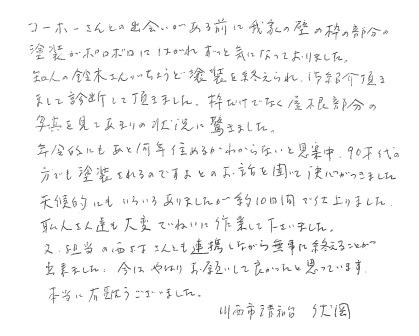 コーホーさんとの出会いがある前に我家の壁の枠の部分の
塗装がボロボロにはがれずっと気になっておりました。
知人の鈴木さんがちょうど塗装を終えられ、御紹介頂き
まして診断して頂きました。枠だけでなく屋根部分の
写真を見てあまりの状況に驚きました。
年金的にもあと何年住めるかわからないと思案中、90才代の
方でも塗装されるのですよとのお話を聞いて決心がつきました
天候的にもいろいろありましたが約10日間で仕上りました。
職人さん達も大変ていねいに作業して下さいました。
又、担当の西さんとも連携しながら無事に終えることが
出来ました。今はやはりお願いして良かったと思っています。
本当に有難うございました。
川西市清和台 伏岡